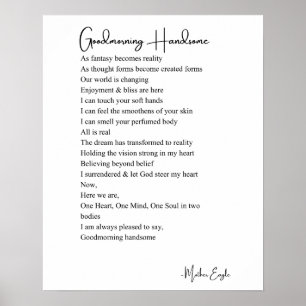 Goodmorning Handsome
As fantasy becomes reality
As thought forms become created forms
Our world is changing
Enjoyment & bliss are here
I can touch your soft hands
I can feel the smoothens of your skin
I can smell your perfumed body
All is real
The dream has transformed to reality
Holding the vision strong in my heart
Believing beyond belief
I surrendered & let God steer my heart
Now,
Here we are,
One Heart, One Mind, One Soul in two
bodies
I am always pleased to say,
Goodmorning handsome
-Mother Eagle